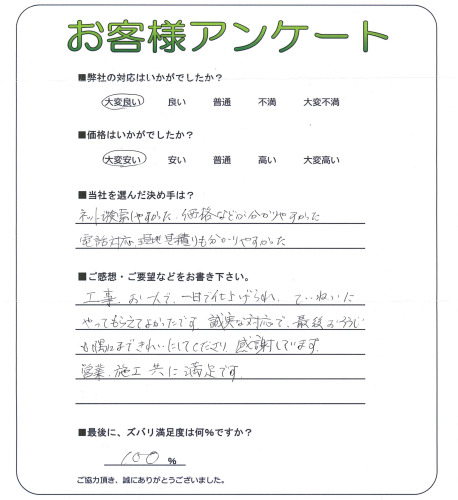 お客様アンケート
■弊社の対応はいかがでしたか？
大変良い 良い 普通 不満 大変不満
■価格はいかがでしたか？
大変安い 安い 普通 高い 大変高い
■当社を選んだ決め手は？
ネット検索しやすかった 価格などが分かりやすかった
電話対応、現地見積りも分かりやすかった
■ご感想・ご要望などをお書き下さい。
工事、お一人で、一日で仕上げられ、ていねいに
やってもらえてよかったです。誠実な対応で、最後のそうじ
も隅々まできれいにしてくださり、感謝しています。
営業、施工 共に 満足です。
■最後に、ズバリ満足度は何％ですか？
100 ％
ご協力頂き、誠にありがとうございました。